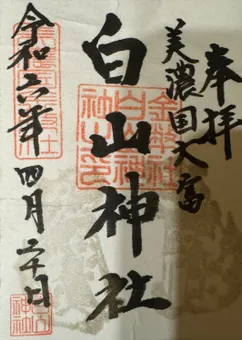 奉拝
美濃国大富
白山神社
令和六年四月二十日